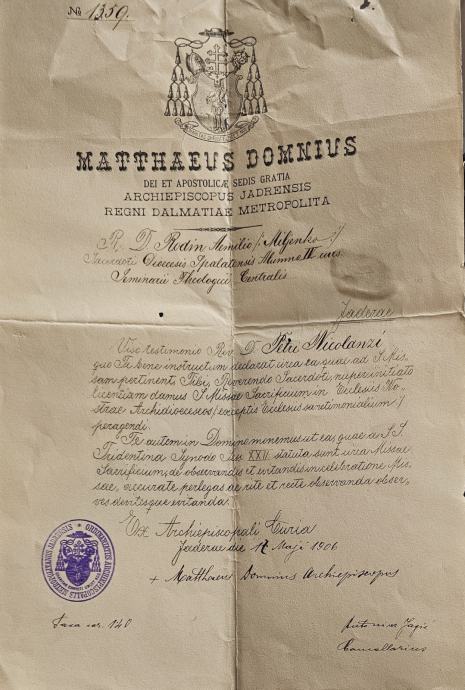 № 1359.
MATTHAEUS DOMNIUS
DEI ET APOSTOLICÆ SEDIS GRATIA
ARCHIEPISCOPUS JADRENSIS
REGNI DALMATIAE METROPOLITA
R. D. Rodin Aemilio /:Miljenko:/
Sacerdoti Dioecesis Spalatensis Alumno
Seminarii Theologici Centralis
Jaderae
Viso testimonio Rev. D. Petri Nicolanzi
quo Te bene instructum declarat circa ea quae ad S. Mis-
sam pertinent, Tibi, Reverendo Sacerdoti, nuper initiato
licentiam damus S. Missae Sacrificium in Ecclesiis No-
strae Archidioeceseos /:exceptis Ecclesiis sanctimonialium:/
peragendi.
Te autem in Domino monemus ut ea, quae a S. S.
Tridentina Synodo Sess. XXII. statuta sunt circa Missae
Sacrificium, de observandis et evitandis in celebratione Mis-
sae, accurate perlegas ac rite et recte observanda obser-
ves, devitesque evitanda.
Ex Archiepiscopali Curia
Jaderae die Maji 1906
+ Matthaeus Domnius Archiepiscopus
Taxa cor. 140
Antonius
Cancellarius